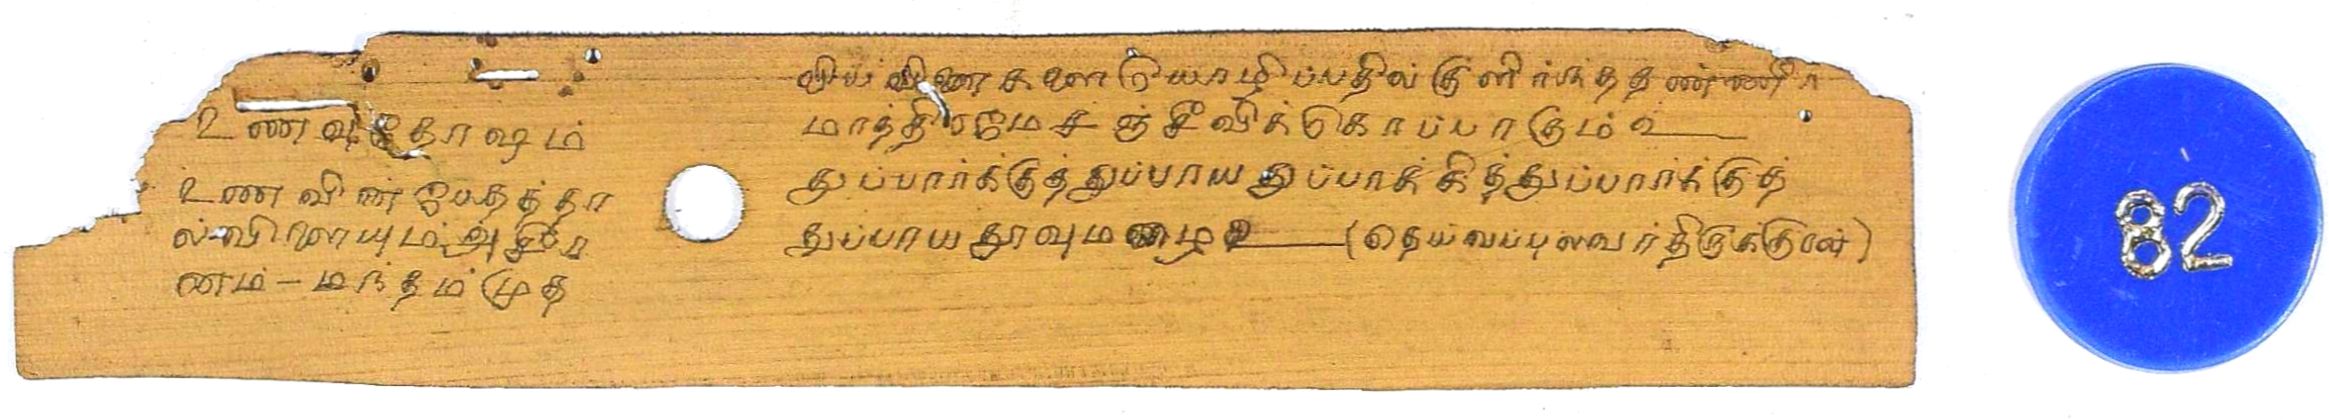 உணவுதோஷம்
உணவின் பேதத்தா
ல்விளையும் அசீர
ணம் – மந்தம் முத
விய விணைகளை யொழிப்பதில் குளிர்ந்ததண்ணீர்
மாத்திரமே சஞ்சீவிக் கொப்பாகும் உ
துப்பார்க்குத் துப்பாய துப்பாக்கித் துப்பார்க்குத்
துப்பாய தூவுமழை உ (தெய்வப்புலவர் திருக்குறள்)
82